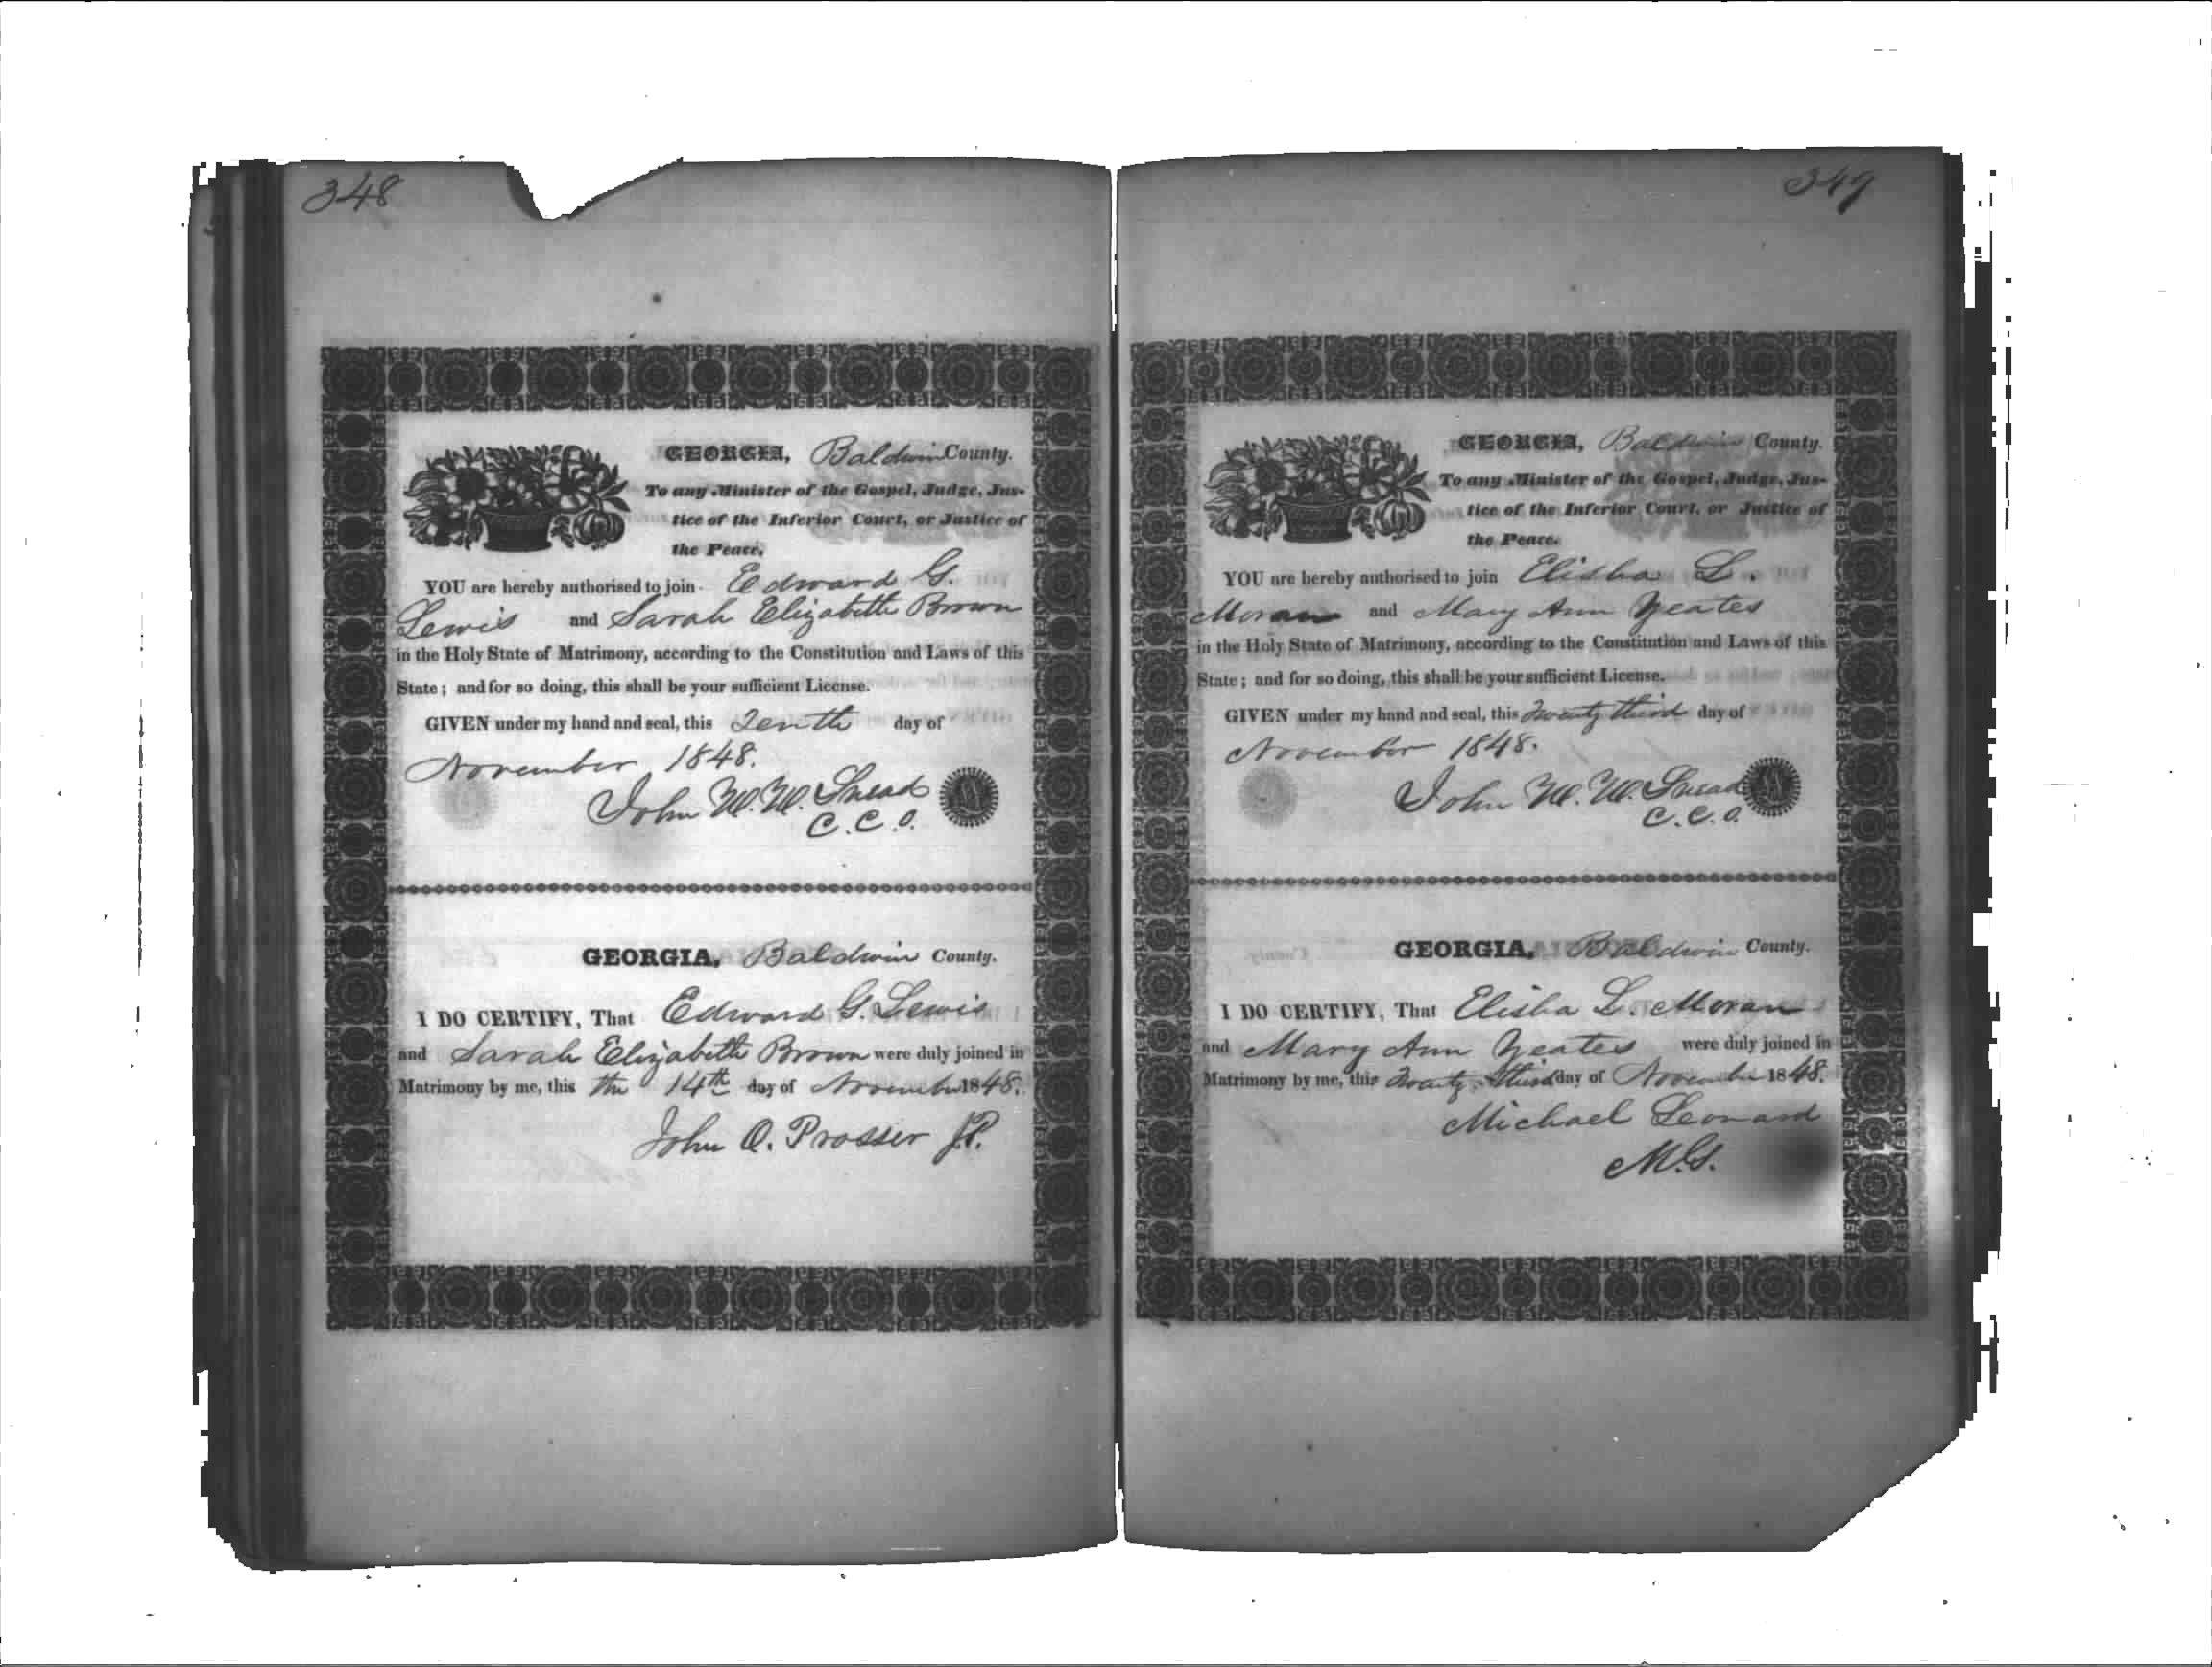 348
GEORGIA, Baldwin County.
To any Minister of the Gospel, Judge, Jus-
tice of the Inferior Court, or Justice of
the Peace.
YOU are hereby authorised to join Edward G.
Lewis and Sarah Elizabeth Brown
in the Holy State of Matrimony, according to the Constitution and Laws of this
State; and for so doing, this shall be your sufficient License.
GIVEN under my hand and seal, this Tenth day of
November 1848.
John W. W. Snead
C. C. O.
GEORGIA, Baldwin County.
I DO CERTIFY, That Edward G. Lewis
and Sarah Elizabeth Brown were duly joined in
Matrimony by me, this the 14th day of November 1848.
John O. Prosser J.P.
349
GEORGIA, Baldwin County.
To any Minister of the Gospel, Judge, Jus-
tice of the Inferior Court, or Justice of
the Peace.
YOU are hereby authorised to join Elisha L.
Moran and Mary Ann Yeates
in the Holy State of Matrimony, according to the Constitution and Laws of this
State; and for so doing, this shall be your sufficient License.
GIVEN under my hand and seal, this Twenty third day of
November 1848.
John W. W. Snead
C. C. O.
GEORGIA, Baldwin County.
I DO CERTIFY, That Elisha L. Moran
and Mary Ann Yeates were duly joined in
Matrimony by me, this Twenty Third day of November 1848.
Michael Leonard
M.G.